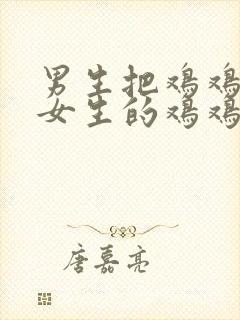 男生把鸡鸡
女生的鸡鸡
唐嘉亮